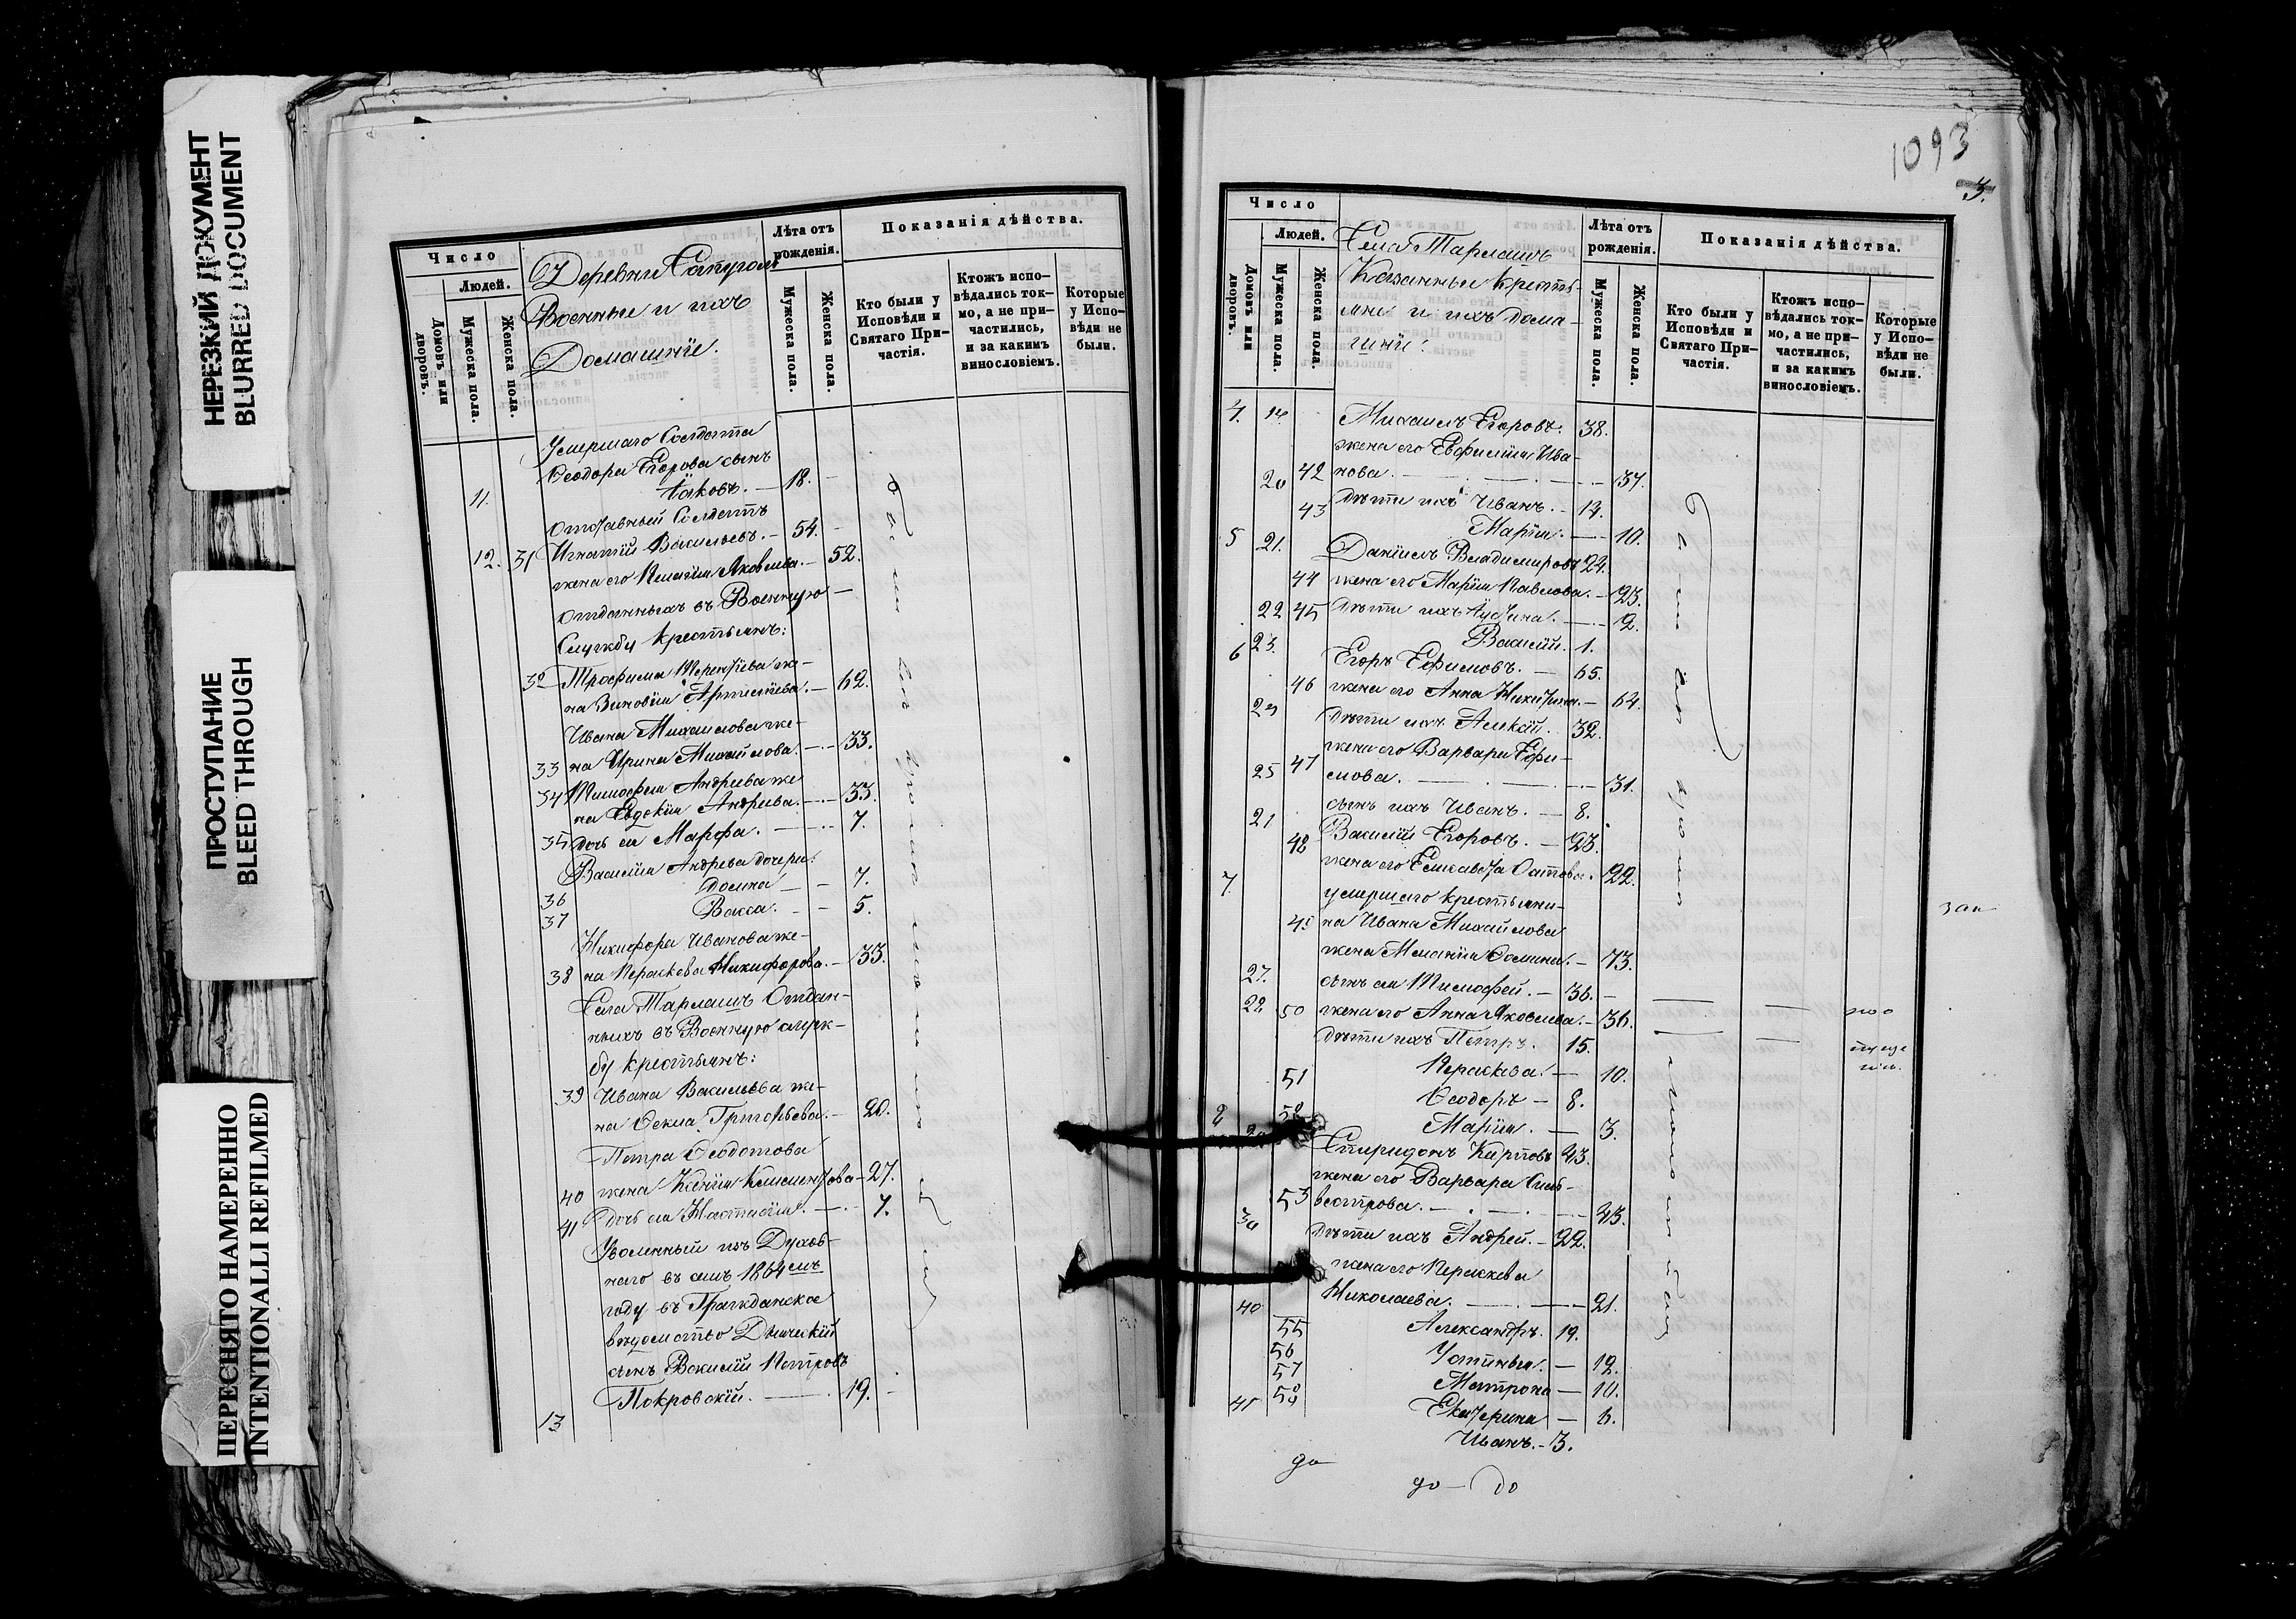 НЕРЕЗКИЙ ДОКУМЕНТ
BLURRED DOCUMENT
ПРОСТУПАНИЕ
BLEED THROUGH
ПЕРЕСНЯТО НАМЕРЕННО
INTENTIONALLI REFILMED
Число
Людей.
Домовъ или дворовъ.
Мужеска пола.
Женска пола.
Деревни
Военные и ихъ
Домашнїе.
Лѣта отъ рожденія.
Мужеска пола.
Женска пола.
Показанія дѣйства.
Кто были у Исповѣди и Святаго Причастія.
Ктожъ исповѣдались токмо, а не причастились, и за какимъ винословіемъ.
Которые у Исповѣди не были.
Умершаго Солдата
Ѳеодора Егорова сынъ
11. Іаковъ. — 18.
Отставный Солдатъ
12. Игнатій Васильевъ. — 54.
31 жена его Пелагія Яковлева. — 52.
Отданныхъ въ Военную
Службу крестьянъ:
Трофима Терентіева же-
32 на Зиновія — 62.
Ивана Михаилова же-
33 на Ирина Михайлова. — 33.
Тимофея Андреева же
34 на Евдокія Андреева. — 33.
35 дочь ея Марфа. — 7.
Василія Андреева дочери:
36 Домна — 7.
37 Васса. — 5.
Никифора Иванова же-
38 на Параскева Никифорова. — 33.
Села Тарлашъ Отдан-
ныхъ въ Военную служ-
бу крестьянъ:
39 Ивана Васильева же-
на Ѳекла Григорьева. — 20.
Петра Ѳеодотова
40 жена Ксенія Климентова — 27.
41 дочь ея Настасія. — 7.
Уволенный изъ Духов-
наго въ семъ 1864мъ
году въ Гражданское
вѣдомство Дьячскій
сынъ Василій Петровъ
13 Покровскій. — 19.
1093
3.
Число
Людей.
Домовъ или дворовъ.
Мужеска пола.
Женска пола.
Села Тарлашъ
Казенные Кресть-
яне и ихъ дома-
шнїе:
Лѣта отъ рожденія.
Мужеска пола.
Женска пола.
Показанія дѣйства.
Кто были у Исповѣди и Святаго Причастія.
Ктожъ исповѣдались токмо, а не причастились, и за какимъ винословіемъ.
Которые у Исповѣди не были.
4. Михаилъ Егоровъ. 38.
жена его Евфимія Ива-
42 нова. — 37.
20 дѣти ихъ Иванъ. —
43 Марія. — 10.
5 21. Даніилъ Владимировъ 24.
44 жена его Марія Павлова. — 23.
45 дѣти ихъ Іустина. — 2.
22 Василій. 1.
6 23. Егоръ Ефимовъ. — 65.
46 жена его Анна Никитина. — 64.
дѣти ихъ Алексій. 32.
жена его Варвара Ефи-
47 мова. — 31.
25 сынъ ихъ Иванъ. — 8.
Василій Егоровъ. — 23.
48 жена его Елисавета — 22.
7 умершаго крестьяни-
на Ивана Михайлова
жена Меланія — 73.
27. сынъ ея Тимофей. — 36.
50 жена его Анна Яковлева. — 36.
дѣти ихъ Петръ. 15.
51 Параскева. — 10.
Ѳеодоръ — 8.
Марія. — 3.
Спиридонъ Карповъ 43.
жена его Варвара Силь-
53 вестрова. — 43.
дѣти ихъ Андрей. — 22.
жена его Параскева
Николаева. — 21.
40 Александръ. 19.
55 Устинья. — 12.
56
57 Матрона — 10.
58 Екатерина — 6.
Иванъ. — 3.
до
до — до